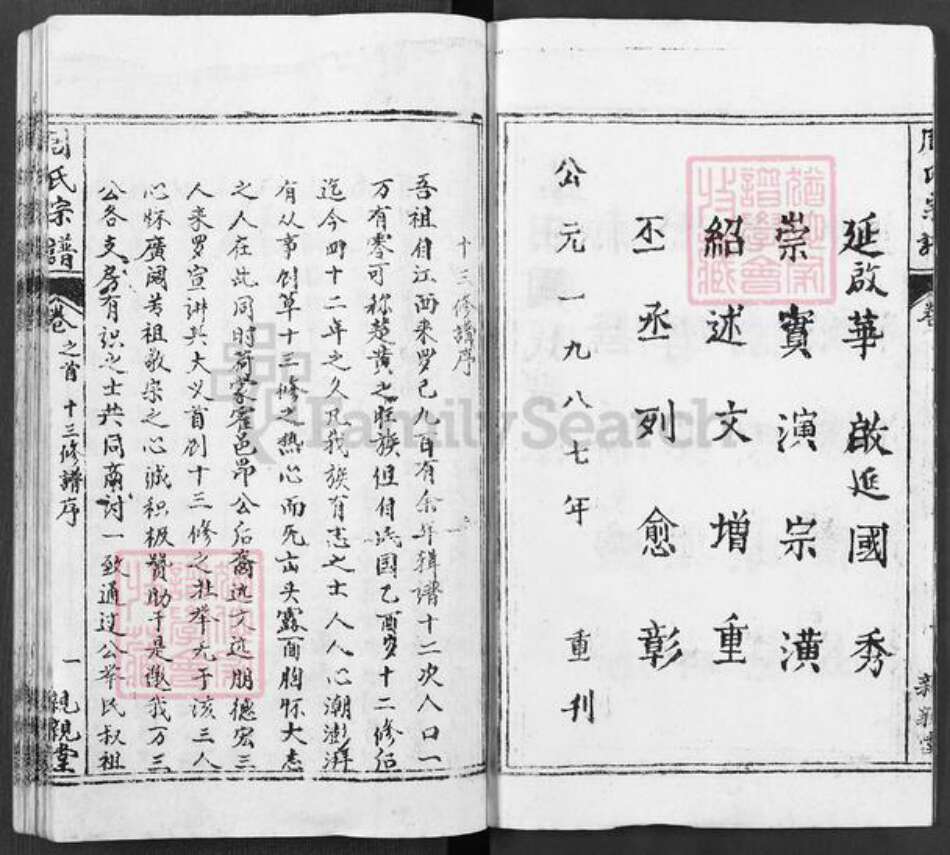 延啟華啟延國秀
崇實演宗潢
紹述文增重
丕丞列愈彰
公元一九八七年 重刊
十三修譜序
吾祖自江西来罗已九百有余年辑谱十二次人口一
万有零可称楚黄之旺族但自民国乙酉岁十二修后
迄今四十二年之久凡我族有志之士人人心潮澎湃
有从事创草十三修之热心而无出头露面胸怀大志
之人在此同时荷蒙霍邑昂公后裔远文远朋德宏三
人来罗宣讲其大义首创十三修之壮举尤于该三人
心怀广阔苦祖敬宗之心诚积极赞助于是激我万三
公各支房有识之士共同商讨一致通过公举民叔祖
周氏宗譜
卷之首 十三修譜序
一 親親堂
FamilySearch